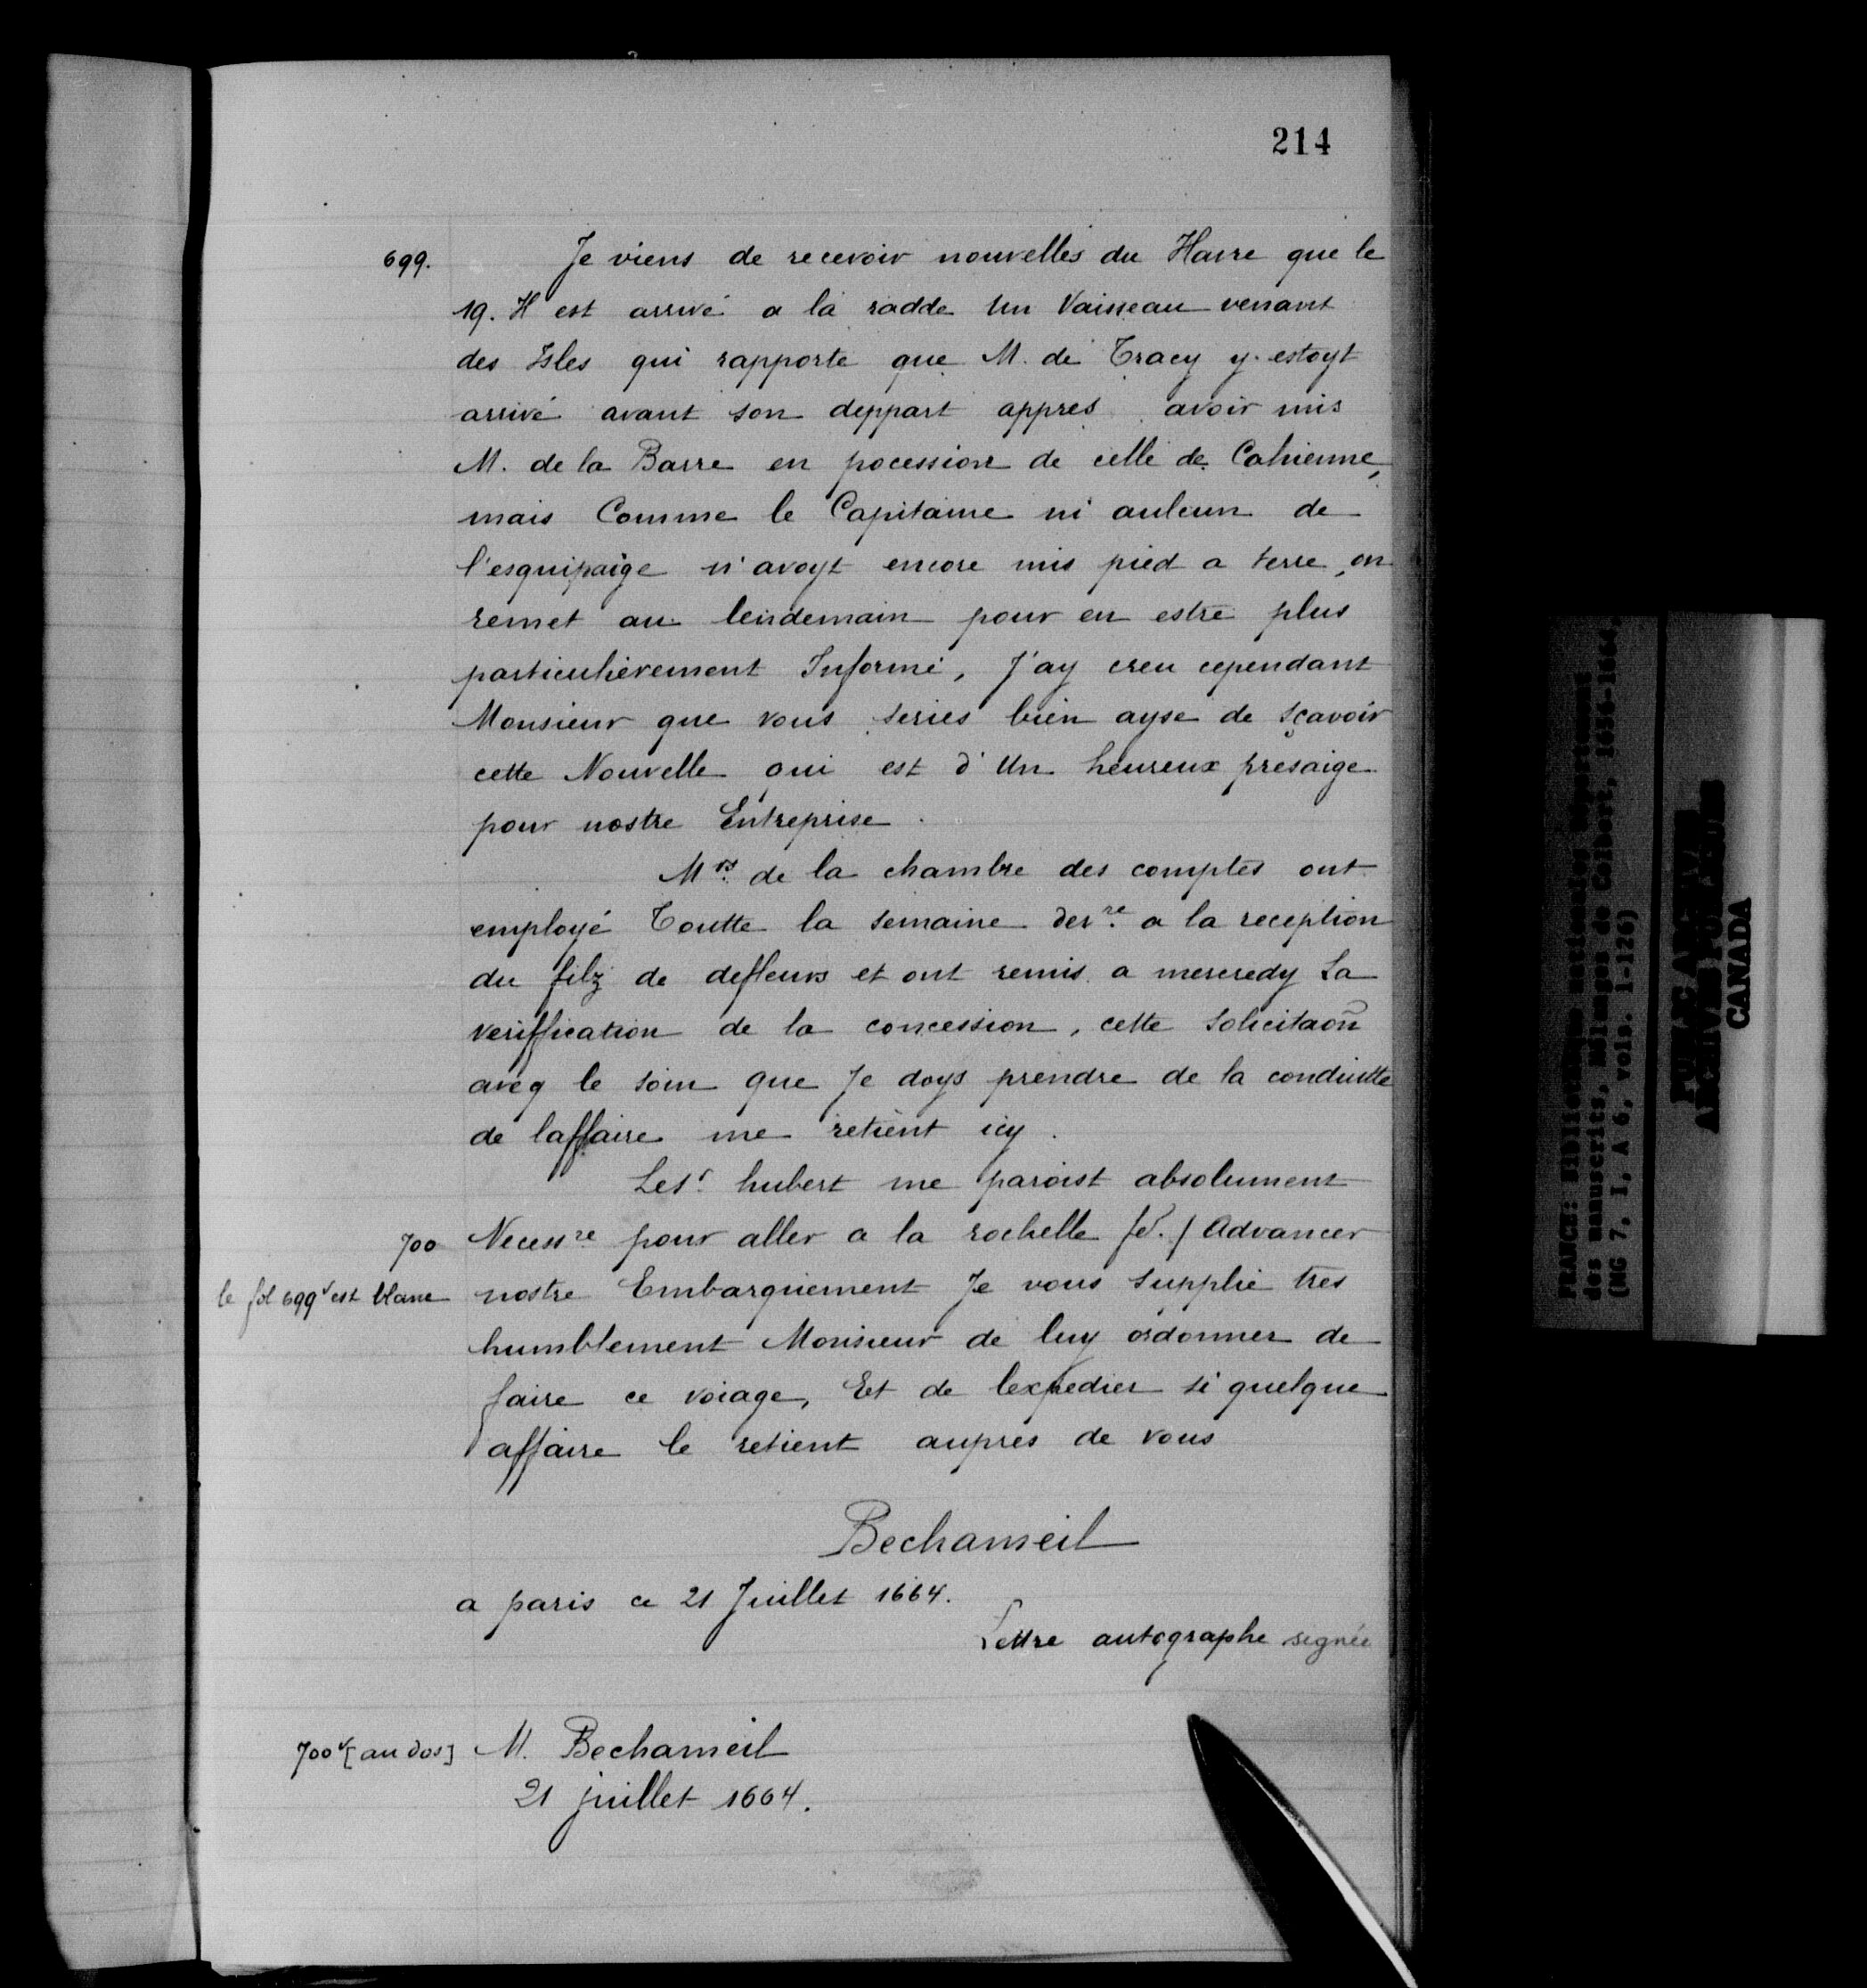 214
699. Je viens de recevoir nouvelles du Havre que le
19. Il est arrivé a la radde Un Vaisseau venant
des Isles qui rapporte que M. de Tracy y estoyt
arrivé avant son deppart appres avoir mis
M. de la Barre en pocession de celle de Cahienne,
mais Comme le Capitaine ni aulcun de
l'esquipaige n'avoyt encore mis pied a terre, on
remet au lendemain pour en estre plus
particulièrement Informé, J'ay creu cependant
Monsieur que vous series bien ayse de sçavoir
cette Nouvelle qui est d'Un heureux presaige
pour nostre Entreprise.
Mrs. de la chambre des comptes ont
employé Toutte la semaine derre. a la reception
du filz de deffleurs et ont remis a mercredy La
veriffication de la concession, cette Solicitaoñ
aveq le soin que Je doys prendre de la conduitte
de laffaire me retient icy.
Le sr. hubert me paroist absolument
700 Necessre pour aller a la rochelle / Advancer
le fol 699v est blanc nostre Embarquement Je vous supplie tres
humblement Monsieur de luy ordonner de
faire ce voiage, Et de lexpedier si quelque
affaire le retient aupres de vous
Bechameil
a paris ce 21 Juillet 1664.
Lettre autographe signée
700v [au dos] M. Bechameil
21 juillet 1664.
FRANCE: Bibliothèque nationale, Département
des manuscrits, Mélanges de Colbert, 1656-1664.
(MG 7, I, A 6, vols. 1-126)
PUBLIC ARCHIVES
ARCHIVES PUBLIQUES
CANADA